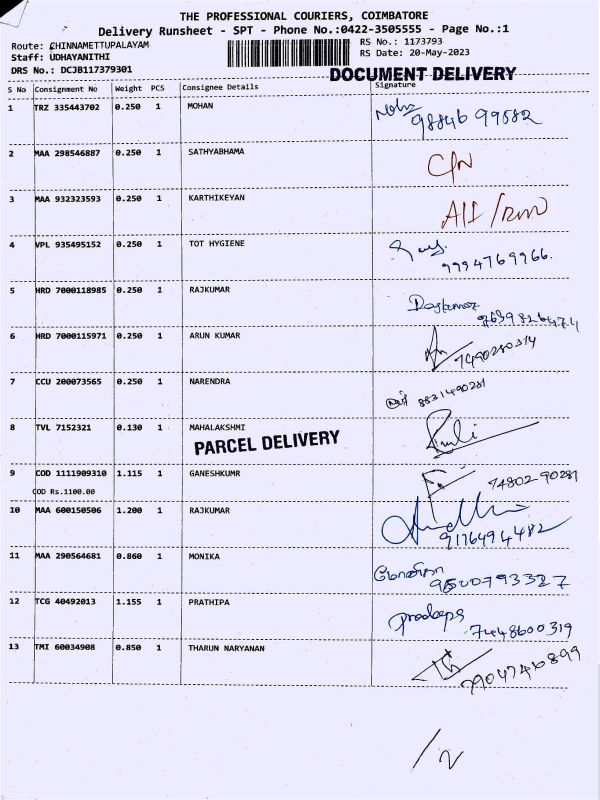 THE PROFESSIONAL COURIERS, COIMBATORE
Delivery Runsheet - SPT - Phone No.:0422-3505555 - Page No.:1
Route: CHINNAMETTUPALAYAM RS No.: 1173793
Staff: UDHAYANITHI RS Date: 20-May-2023
DRS No.: DCJB117379301
DOCUMENT DELIVERY
S No Consignment No Weight PCS Consignee Details Signature
1 TRZ 335443702 0.250 1 MOHAN
2 MAA 298546887 0.250 1 SATHYABHAMA
3 MAA 932323593 0.250 1 KARTHIKEYAN
4 VPL 935495152 0.250 1 TOT HYGIENE
9994769966.
5 HRD 7000118985 0.250 1 RAJKUMAR
6 HRD 7000115971 0.250 1 ARUN KUMAR
7 CCU 200073565 0.250 1 NARENDRA
8 TVL 7152321 0.130 1 MAHALAKSHMI
PARCEL DELIVERY
9 COD 1111909310 1.115 1 GANESHKUMR
7480290281
COD Rs.1100.00
10 MAA 600150506 1.200 1 RAJKUMAR
9176494482
11 MAA 290564681 0.860 1 MONIKA
9500793327
12 TCG 40492013 1.155 1 PRATHIPA
7448600319
13 TMI 60034908 0.850 1 THARUN NARYANAN